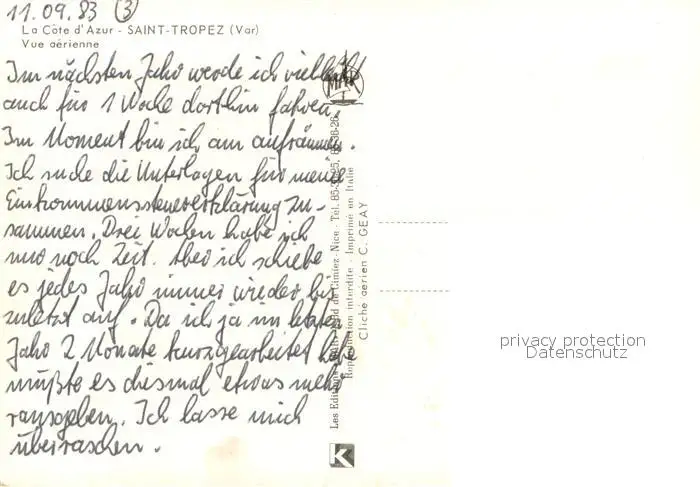 11.09.83 (3)
La Côte d'Azur - SAINT-TROPEZ (Var)
Vue aérienne
Im nächsten Jahr werde ich vielleicht
auch für 1 Woche dorthin fahren.
Im Moment bin ich am aufräumen.
Ich suche die Unterlagen für meine
Einkommenssteuererklärung zu-
sammen. Drei Wochen habe ich
nur noch Zeit. Aber ich schiebe
es jedes Jahr immer wieder bis
zuletzt auf. Da ich ja im letzten
Jahr 2 Monate kurzgearbeitet habe
müßte es diesmal etwas mehr
rausgeben. Ich lasse mich
überraschen.
MAR
Les Editions de Cimiez - Nice - Tél.
Reproduction interdite - Imprimé en Italie
Cliché aérien C. GEAY
K
privacy protection
Datenschutz